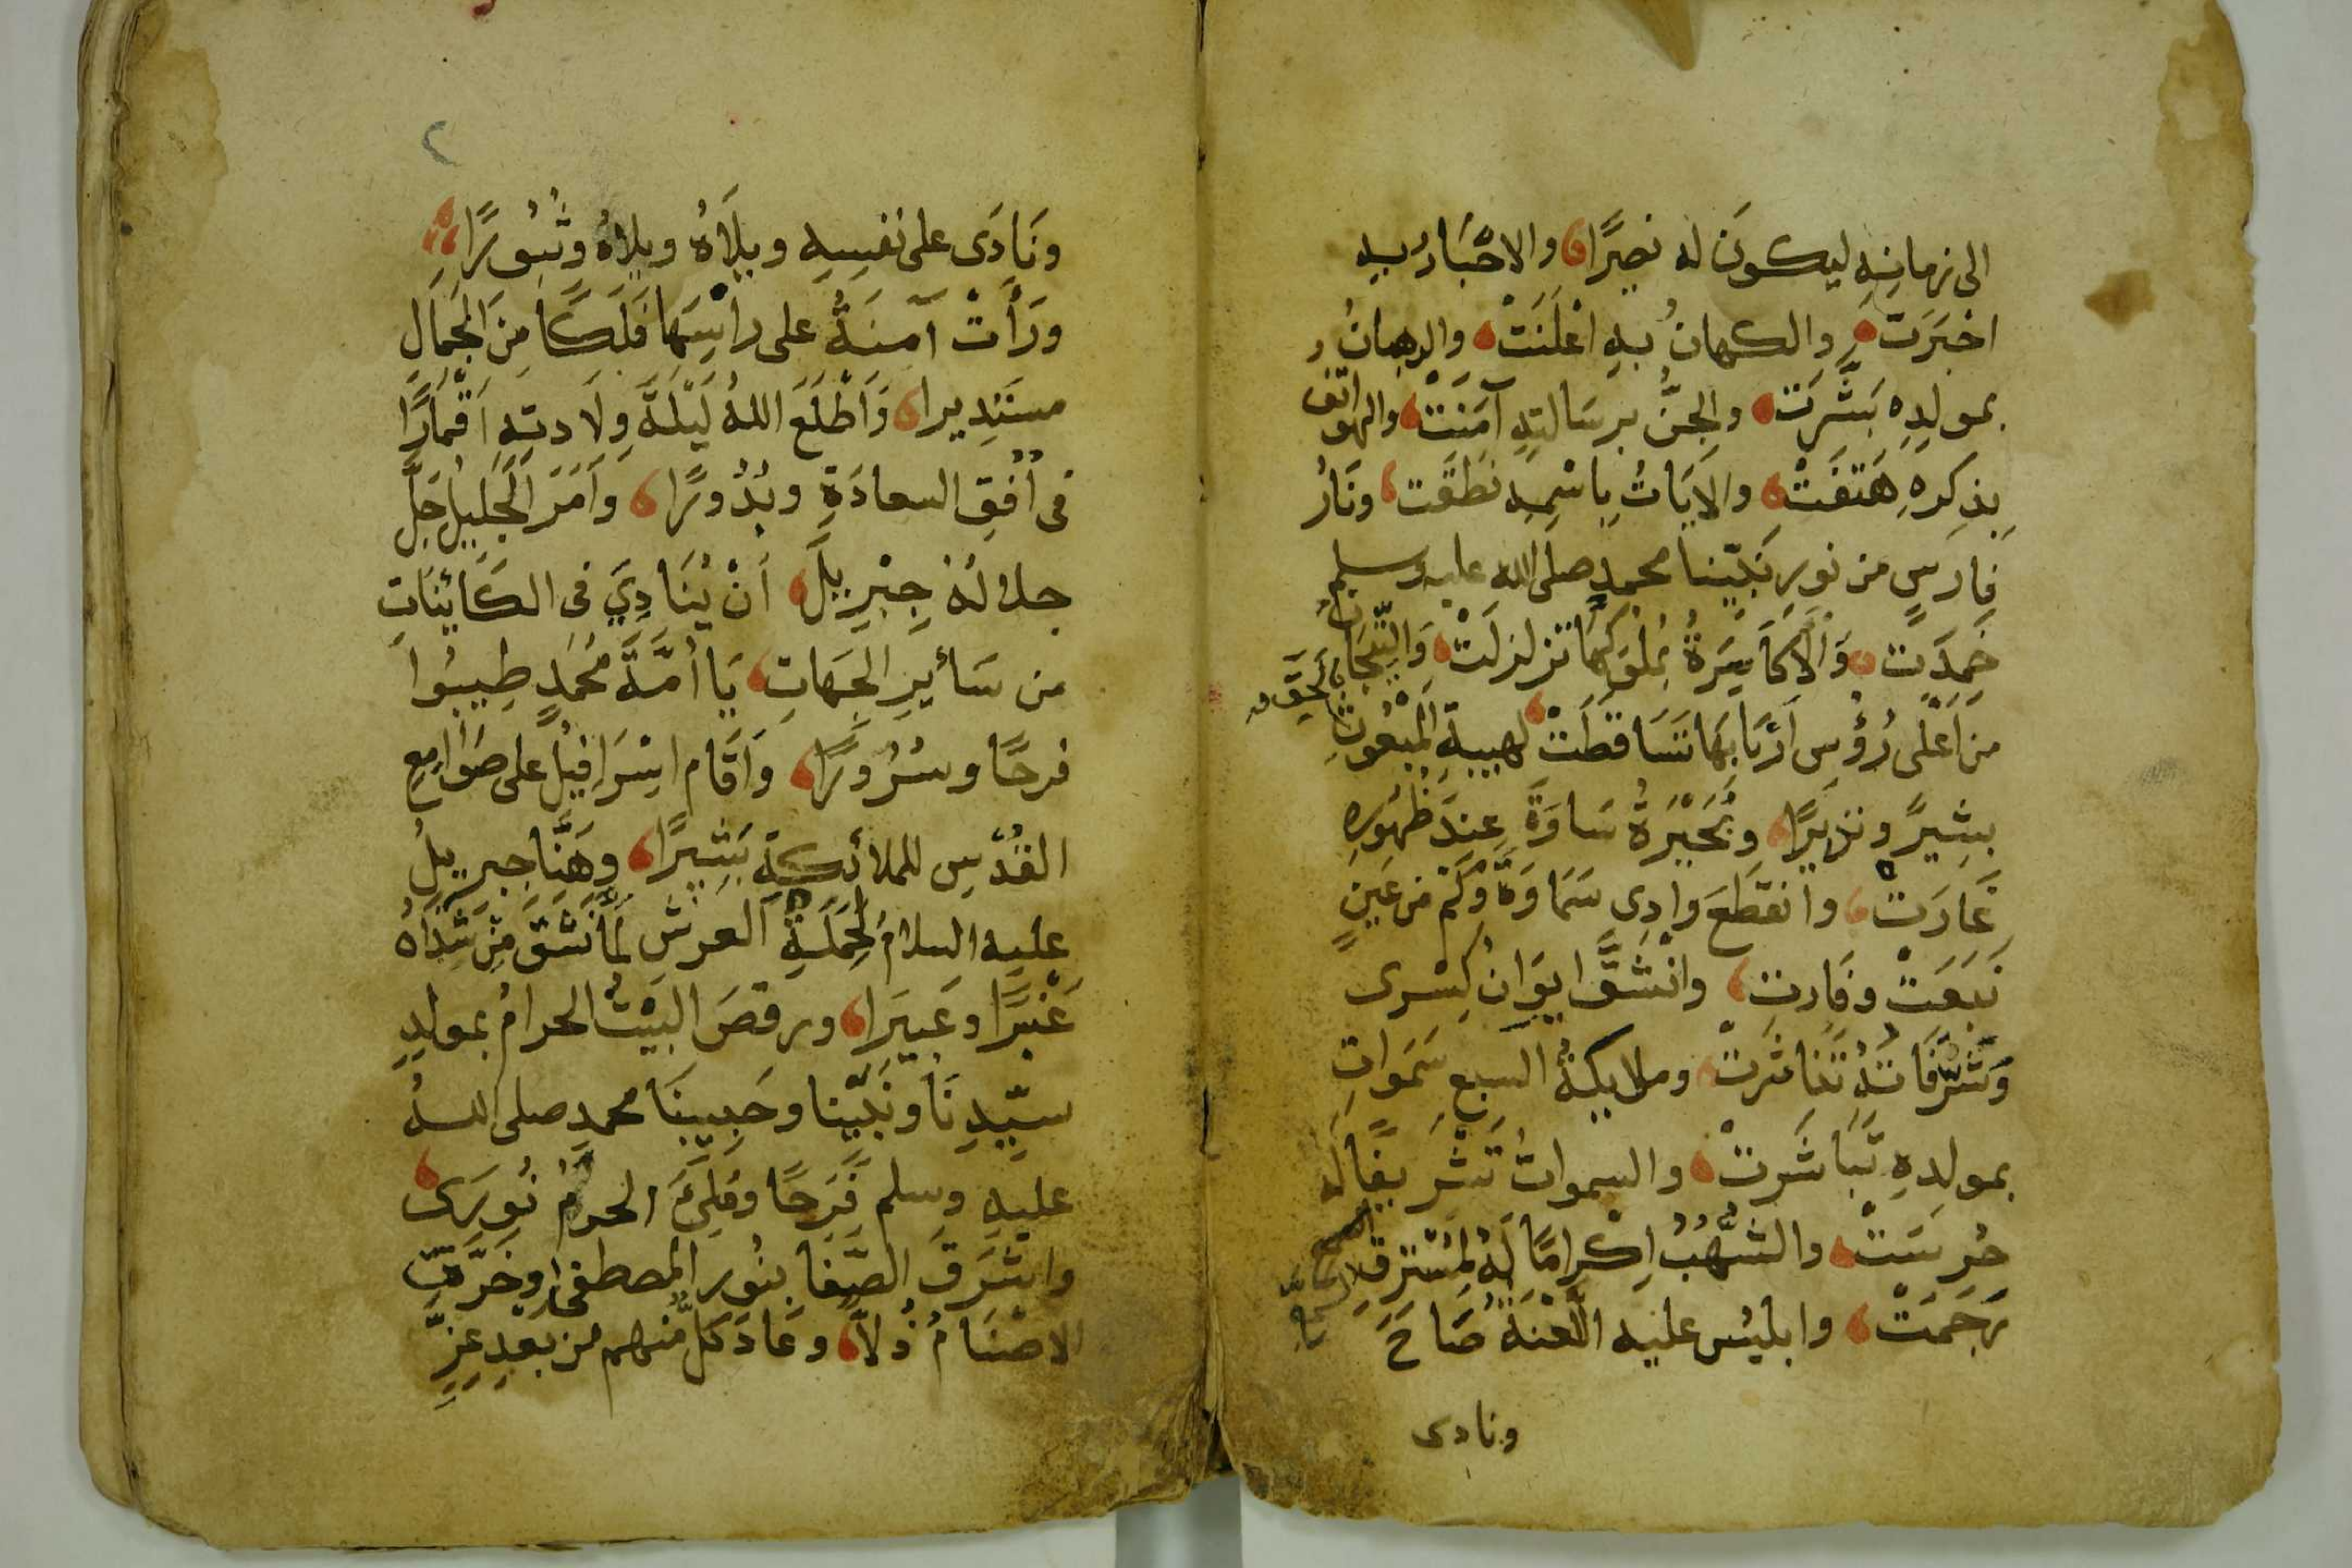 الى زمانِهِ ليكونَ له نصيرًا والاحْبَارُ بهِ
اخبَرَتْ والكهانُ بهِ اعْلَنَتْ والرهبانُ
بمولدِهِ بَشَّرَتْ والجنُّ برسَالتِهِ آمَنَتْ والهواتف
بذِكرِهِ هَتَفَتْ والايَاتُ بِاسْمِهِ نطقَت ونَارُ
فارسٍ من نورِ نَبيّنا محمدٍ صلى الله عليه وسلم
خَمِدَتْ وَالاكَاسِرَةُ بمُلوكِهَا تزلزلَتْ وَالتِّيجَانُ
من اَعْلَى رُؤُسِ اَرْبَابِهَا تَسَاقطَتْ لهيبةِ المَبْعُوثِ بالحَقِّ
بشِيرًا ونذيرًا وبُحَيْرَةُ سَاوَةَ عِندَ ظهُورِهِ
غَارَتْ وانقطَعَ وادِى سَمَاوَةَ وَكَمْ من عَينٍ
نَبَعَتْ وفَارت وانْشَقَّ ايوَانُ كِسْرى
وَشُرَّفَاتُهُ تَنَاثرَتْ وملايكةُ السبعِ سَمَواتِ
بمولدِهِ تَبَاشَرتْ والسمواتُ تَشْريفًا لَهُ
حُرسَتْ والشُّهُبُ اِكْرامًا لَهُ لِمُسْتَرِقِ السمع
رَجَمَتْ وابليسُ عليه اللَّعْنَةُ صَاحَ
ونادى
٢
ونَادَى على نفسِهِ ويلَاهُ ويلاهُ وثُبُورًا
ورَأَتْ آمِنَةُ على رأسِهَا فَلَكًا مِنَ الجَمَالِ
مستَدِيرا وَاَطْلَعَ اللهُ لَيْلَةَ وِلَادتِهِ اَقْمَارًا
فى اُفُقِ السعادَةِ وبُدُورًا وَاَمَرَ الجَلِيلُ جَلَّ
جلالُهُ جِبْرِيلَ أنْ يُنَادِيَ فى الكَائِنَاتِ
من سَائرِ الجِهَاتِ يَا اُمَّةَ مُحَمَّدٍ طِيبُوا
فرحًا وسُرُورًا وَاَقَام اسْرَافِيلُ على صَوَامِعِ
القُدْسِ للملائكةِ بَشِيرًا وَهَنَّا جِبريلُ
عليه السلامُ لحَمَلَةِ العرشِ لَمَّا نَشَقَ مِنْ شَذَاهُ
عَنْبَرًا وعَبيرَا ورقصَ البَيْتُ الحرامُ بمولدِ
سيّدِنَا ونَبيّنا وحَبِيبِنَا محمدٍ صلى اللهُ
عليهِ وسلم فَرَحًا ومُلِئَ الحرمُ نُورًا
واشرَقَ الصَّفا بنُورِ المصطفى وخَرَّتِ
الاصْنَامُ ذُلاًّ وعَادَ كلٌّ منهم من بعْدِ عِزِّ